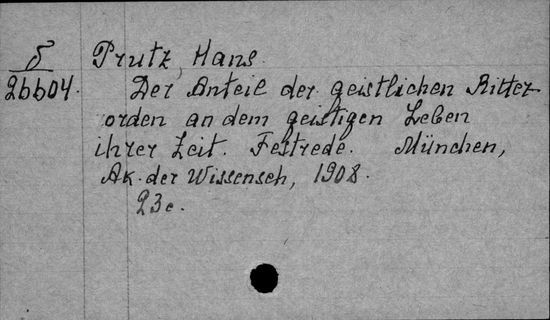 δ Prutz, Hans.
26604. Der Anteil der geistlichen Ritter-
orden an dem geistigen Leben
ihrer Zeit. Festrede. München,
Ak. der Wissensch, 1908.
23c.